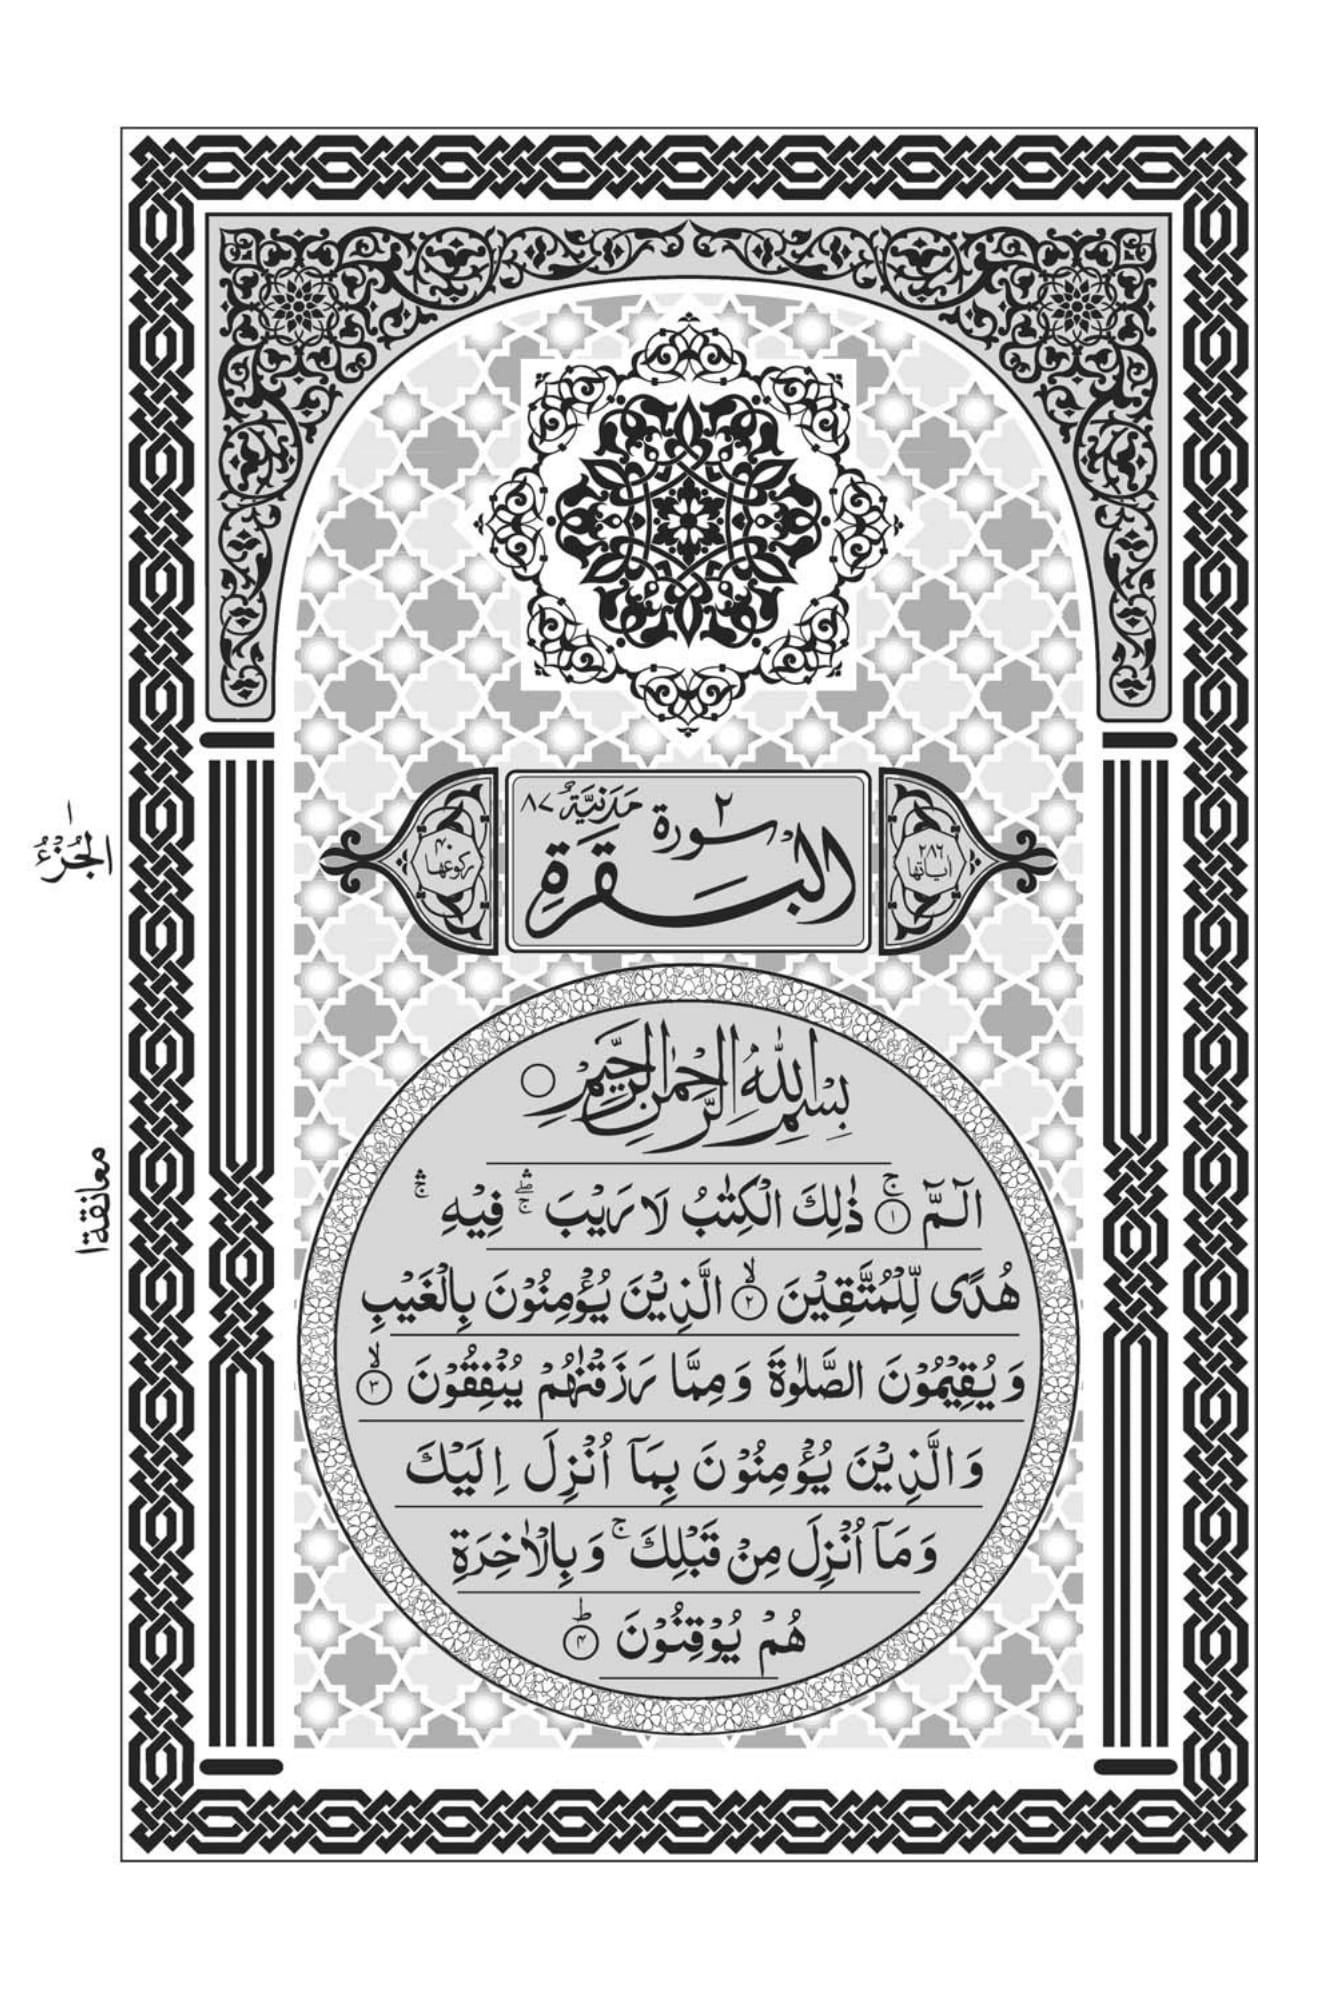 سورة ٢ البقرة مدنية ٨٧
اٰیاتها ٢٨٦
ركوعها ٤٠
الجزء ١
بِسْمِ اللّٰهِ الرَّحْمٰنِ الرَّحِيْمِ ۝
الٓمّٓ ۚ‏﴿۱﴾ ذٰلِكَ الْكِتٰبُ لَا رَيْبَ ۖۛۚ فِيْهِ ۛۚ
هُدًى لِّلْمُتَّقِيْنَ ۙ‏﴿۲﴾ الَّذِيْنَ يُؤْمِنُوْنَ بِالْغَيْبِ
وَيُقِيْمُوْنَ الصَّلٰوةَ وَمِمَّا رَزَقْنٰهُمْ يُنْفِقُوْنَ ۙ‏﴿۳﴾
وَالَّذِيْنَ يُؤْمِنُوْنَ بِمَآ اُنْزِلَ اِلَيْكَ
وَمَآ اُنْزِلَ مِنْ قَبْلِكَ ۚ وَبِالْاٰخِرَةِ
هُمْ يُوْقِنُوْنَ ؕ‏﴿۴﴾
معانقة ١